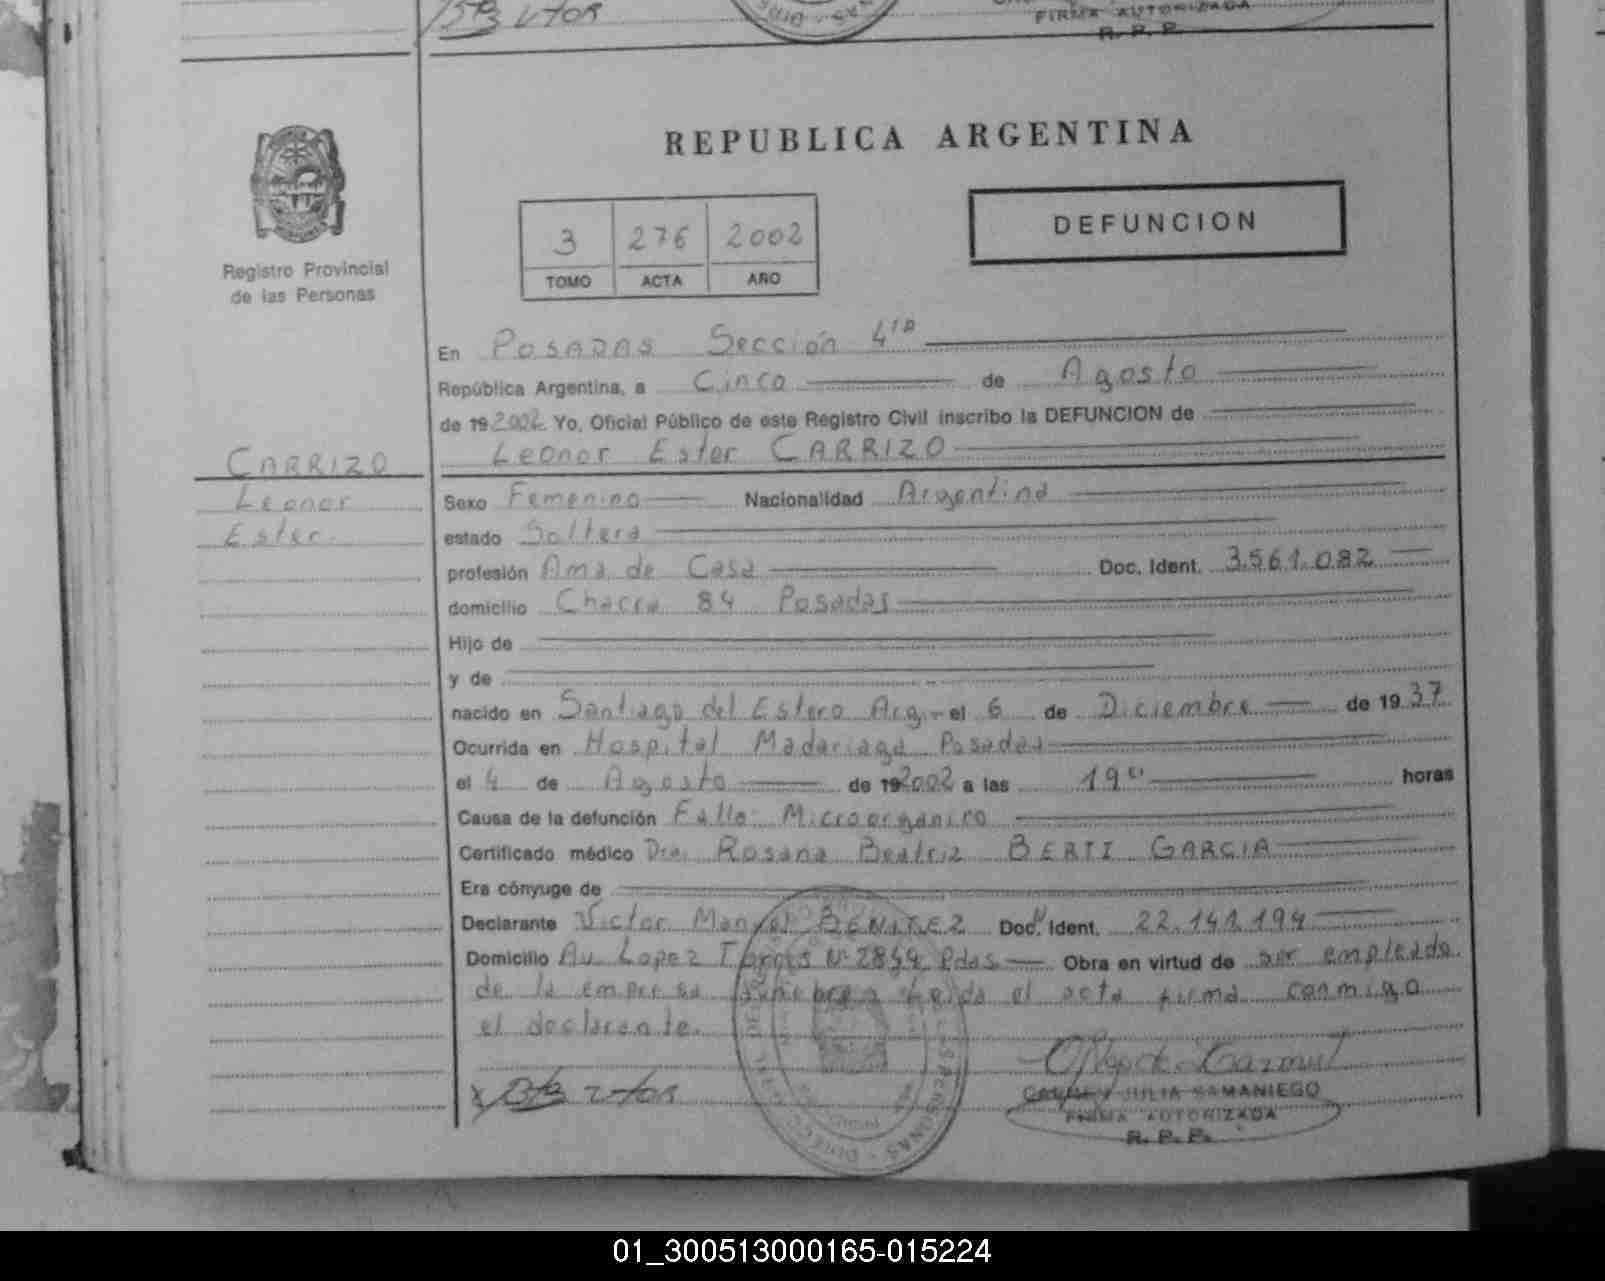 FIRMA AUTORIZADA
R. P. P.
REPUBLICA ARGENTINA
DEFUNCION
3 276 2002
TOMO ACTA AÑO
Registro Provincial
de las Personas
En POSADAS Sección 4ta
República Argentina, a Cinco de Agosto
de 192002 Yo, Oficial Público de este Registro Civil inscribo la DEFUNCION de
Leonor Ester CARRIZO
CARRIZO
Leonor
Ester.
Sexo Femenino Nacionalidad Argentina
estado Soltera
profesión Ama de Casa Doc. Ident. 3.561.082
domicilio Chacra 84 Posadas
Hijo de
y de
nacido en Santiago del Estero Arg. el 6 de Diciembre de 1937
Ocurrida en Hospital Madariaga Posadas
el 4 de Agosto de 192002 a las 19 horas
Causa de la defunción Falla Microorganico
Certificado médico Dra. Rosana Beatriz BERTI GARCIA
Era cónyuge de
Declarante Victor Manuel BENITEZ Doc. Ident. 22.141.194
Domicilio Av. Lopez Torres Nº Pdas Obra en virtud de ser empleado
de la empresa funebre Leida el acta firma conmigo
el declarante.
JULIA SAMANIEGO
FIRMA AUTORIZADA
R. P. P.
01_300513000165-015224